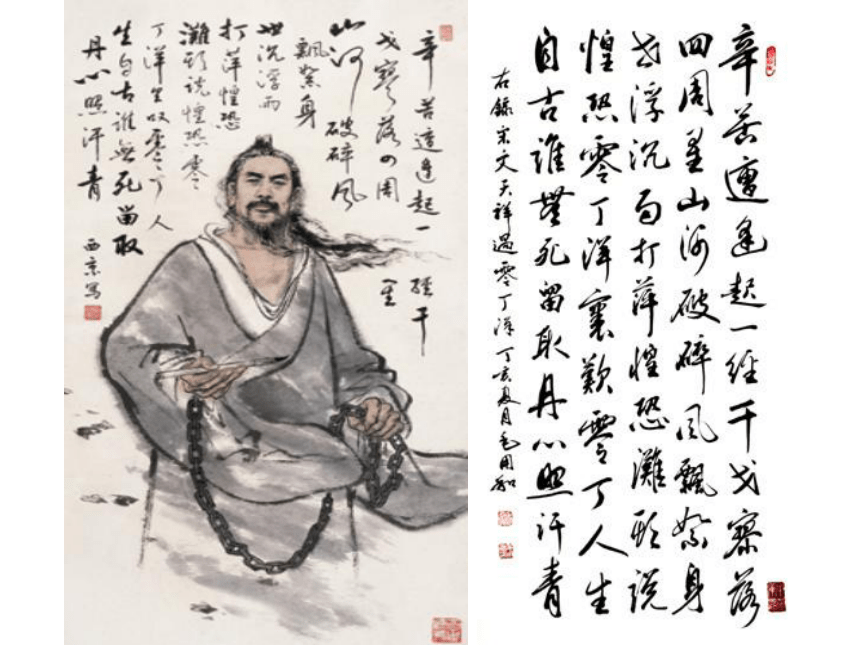 辛苦遭逢起一經干
戈寥落四周星
山河破碎風
飄絮身
世沉浮雨
打萍惶恐
灘頭說惶恐零
丁洋里叹零丁人
生自古誰無死留取
丹心照汗青
西京寫
辛苦遭逢起一經干戈寥落
四周星山河破碎風飄絮身
世浮沉雨打萍惶恐灘頭說
惶恐零丁洋裏歎零丁人生
自古誰無死留取丹心照汗青
右錄宋文天祥過零丁洋 丁亥夏月